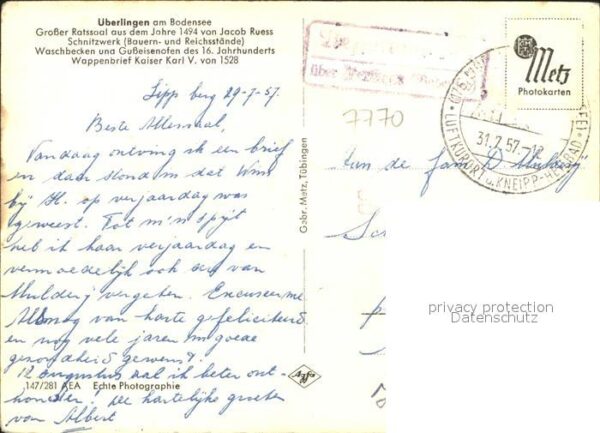 Überlingen am Bodensee
Großer Ratssaal aus dem Jahre 1494 von Jacob Ruess
Schnitzwerk (Bauern- und Reichsstände)
Waschbecken und Gußeisenofen des 16. Jahrhunderts
Wappenbrief Kaiser Karl V. von 1528
berg 29-7-57.
Beste Allemaal,
Vandaag ontving ik een brief
en daar stond in dat Wim
bij st. op verjaardag was
geweest. Tot m'n spijt
heb ik haar verjaardag en
vermoedelijk ook die van
Mulderij vergeten. Excuseer me
Alsnog van harte gefeliciteerd
en nog vele jaren in goede
gezondheid gewenst.
12 augustus zal ik beter ont-
houden! De hartelijke groeten
van Albert
147/281 AEA Echte Photographie
Gebr. Metz, Tübingen
Agfa
über
7770
Metz
Photokarten
31.7.57
LUFTKURORT u. KNEIPP-HEILBAD
Aan de fam. Mulderij
privacy protection
Datenschutz